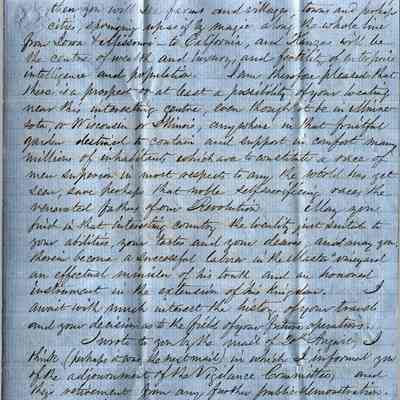 then you will see farms and villages, towns and perhaps
cities, springing up as if by magic along the whole line
from Iowa & Missouri to California, and Kansas will be
the centre of wealth and luxury, and footlights of enterprise
intelligence and population. I am therefore pleased that
there is a prospect or at least a possibility of your locating
near this interesting centre, even though it be in Minne-
sota, or Wisconsin or Illinois, anywhere in that fruitful
garden destined to contain and support in comfort many
millions of inhabitants which are to constitute a race of
men superior in most respects to any the world has yet
seen, save perhaps that noble self-sacrificing race, the
venerated fathers of our Revolution. May you
find in that interesting country the locality just suited to
your abilities, your tastes and your desires, and may you
therein become a successful laborer in the Master's vineyard
an effectual minister of his truth and an honored
instrument in the extension of his kingdom. I
await with much interest the history of your travels
and your decision as to the field of your future operations.
I wrote to you by the mail of 20th August, I
think (perhaps it was the next mail) in which I informed you
of the adjournment of the Vigilance Committee, and
their retirement from any further public demonstration.